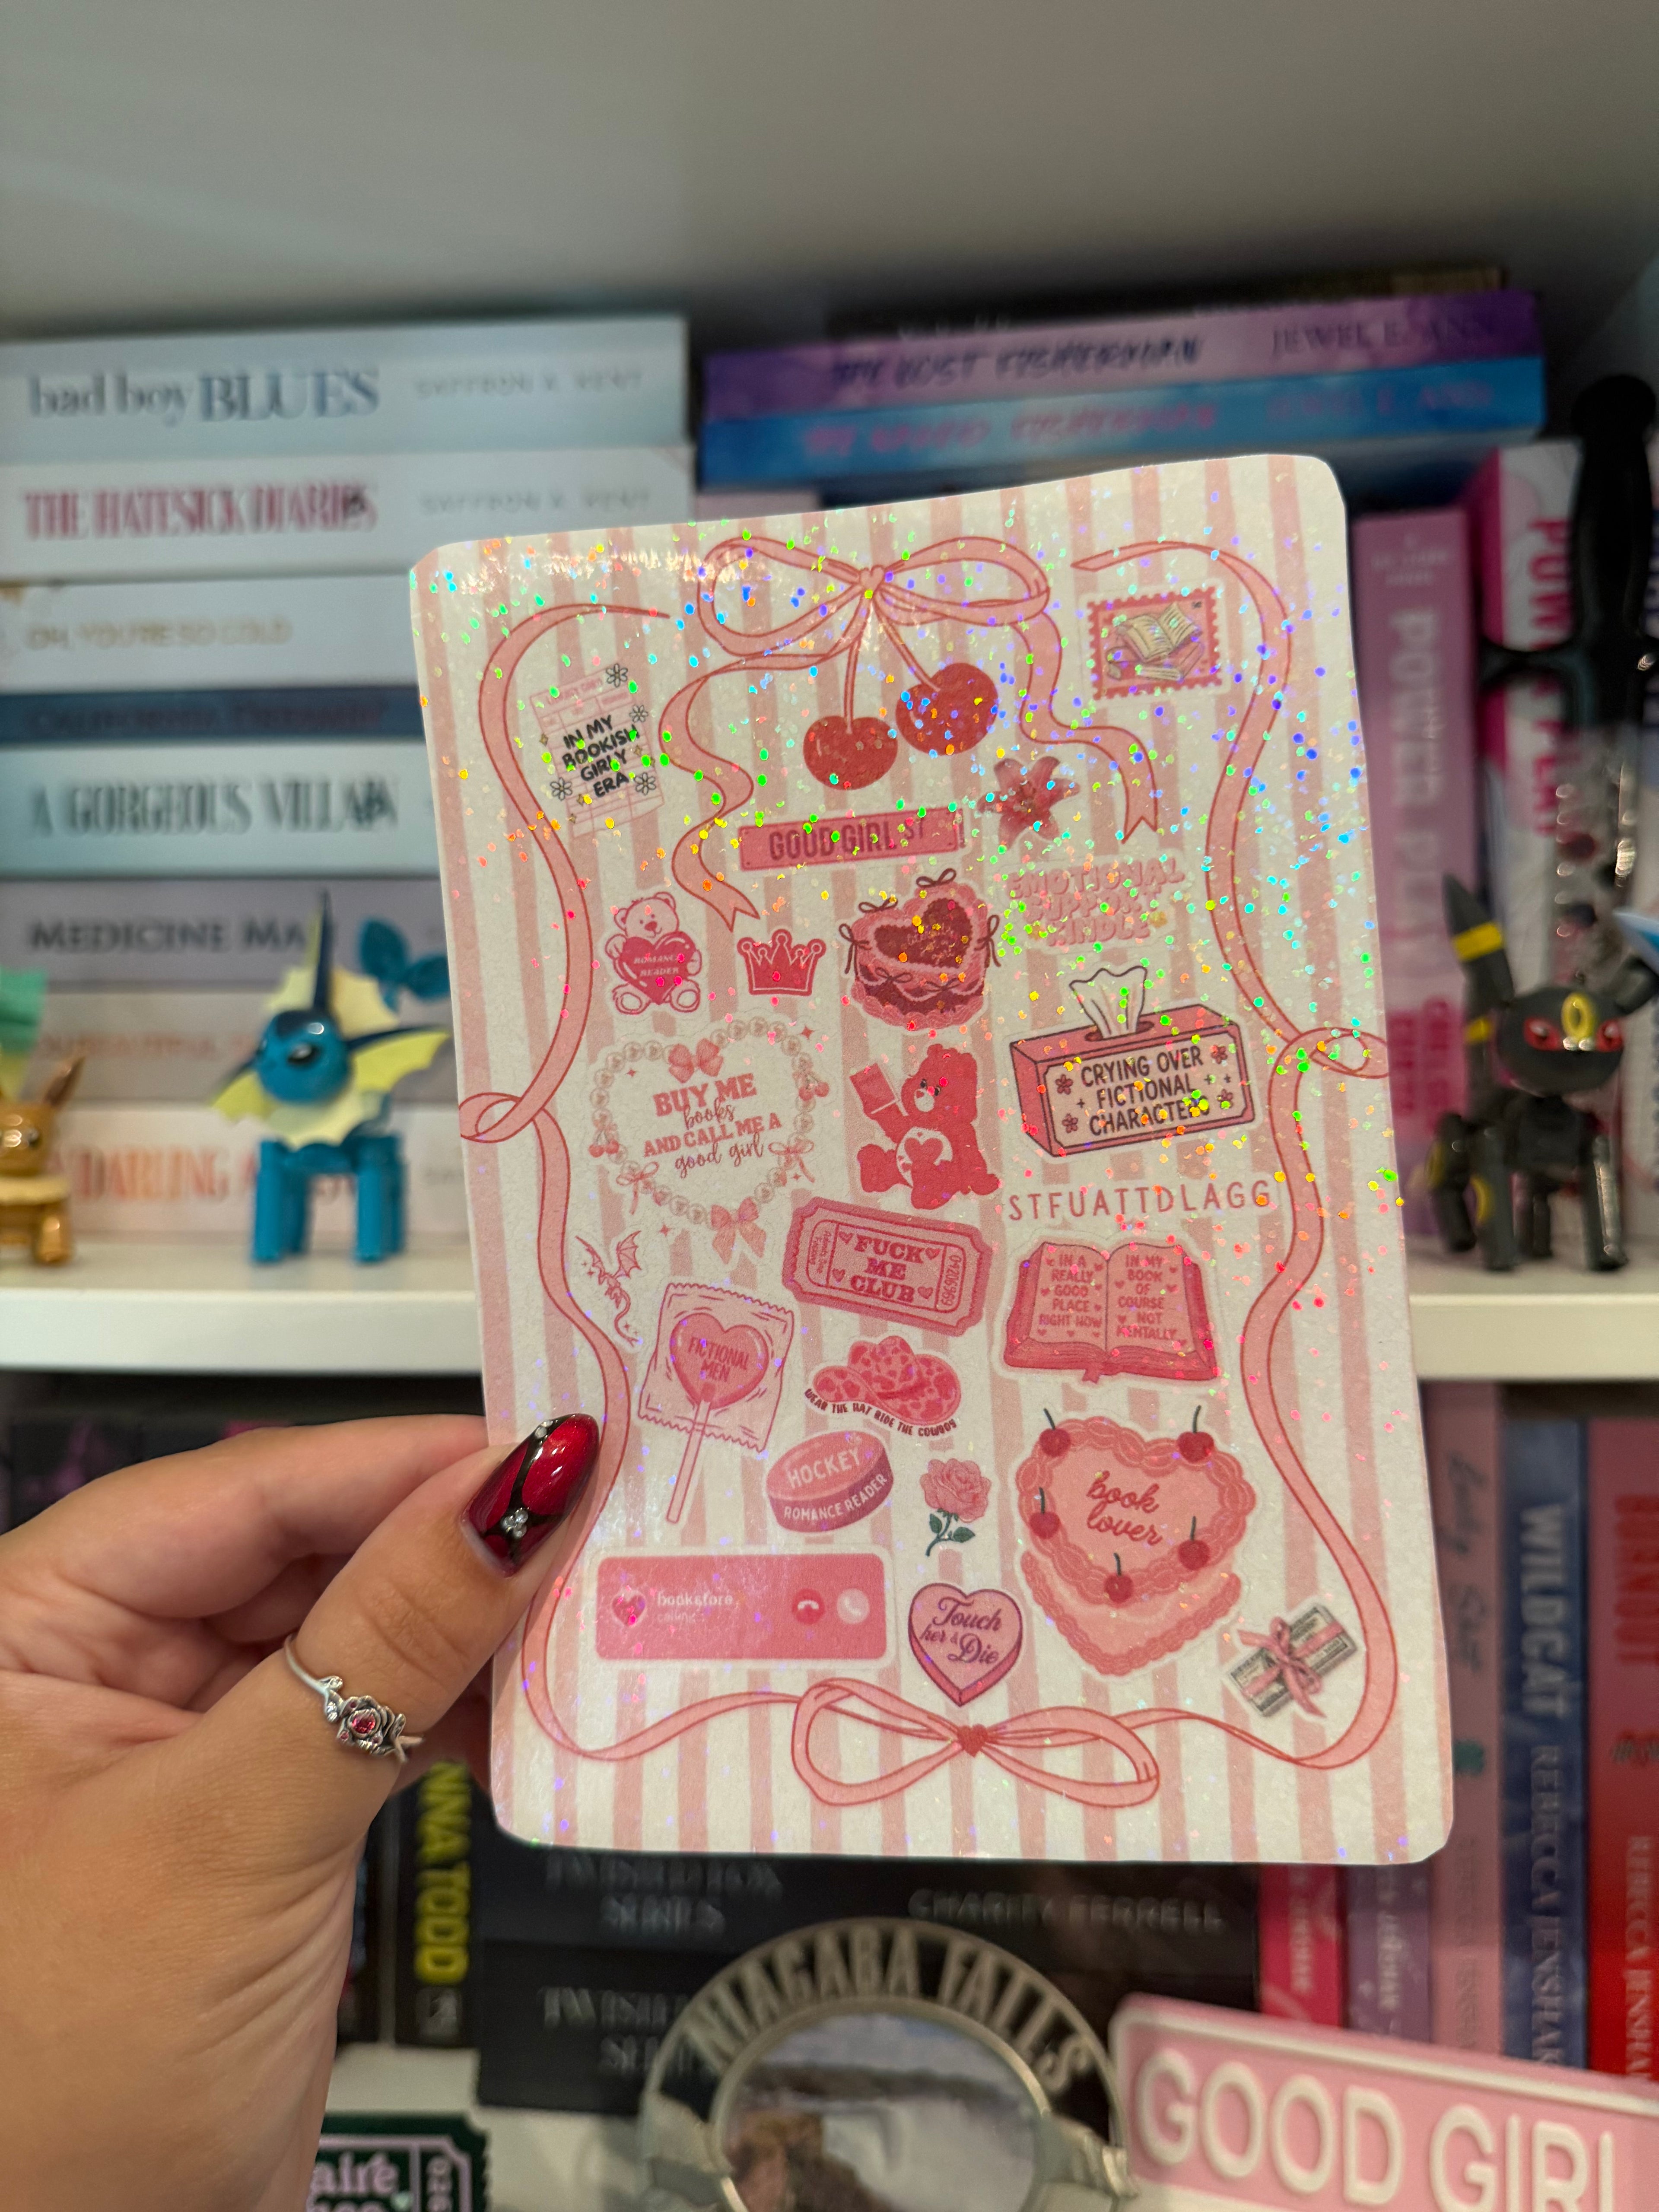 bad boy BLUES SAFFRON A. KENT
THE HATESICK DIARIES SAFFRON A. KENT
OH, YOU'RE SO COLD
CALIFORNIA DREAMIN'
A GORGEOUS VILLAIN
MEDICINE MAN
DARLING
THE LOST FISHERMAN JEWEL E. ANN
FISHERMAN JEWEL E. ANN
IN MY
BOOKISH
GIRLY
ERA
GOOD GIRL ST
EMOTIONAL
SUPPORT
KINDLE
ROMANCE
READER
CRYING OVER
FICTIONAL
CHARACTERS
BUY ME
books
AND CALL ME A
good girl
STFUATTDLAGG
FUCK
ME
CLUB
IN A
REALLY
GOOD
PLACE
RIGHT NOW
IN MY
BOOK
OF
COURSE
NOT
MENTALLY
FICTIONAL
MEN
WEAR THE HAT RIDE THE COWBOY
HOCKEY
ROMANCE READER
book
lover
bookstore
Touch
her &
Die
WILDCAT REBECCA JENSHAK
REBECCA JENSHAK
ANNA TODD
TWISTED FOX
SERIES
CHARITY FERRELL
NIAGARA FALLS
GOOD GIRL